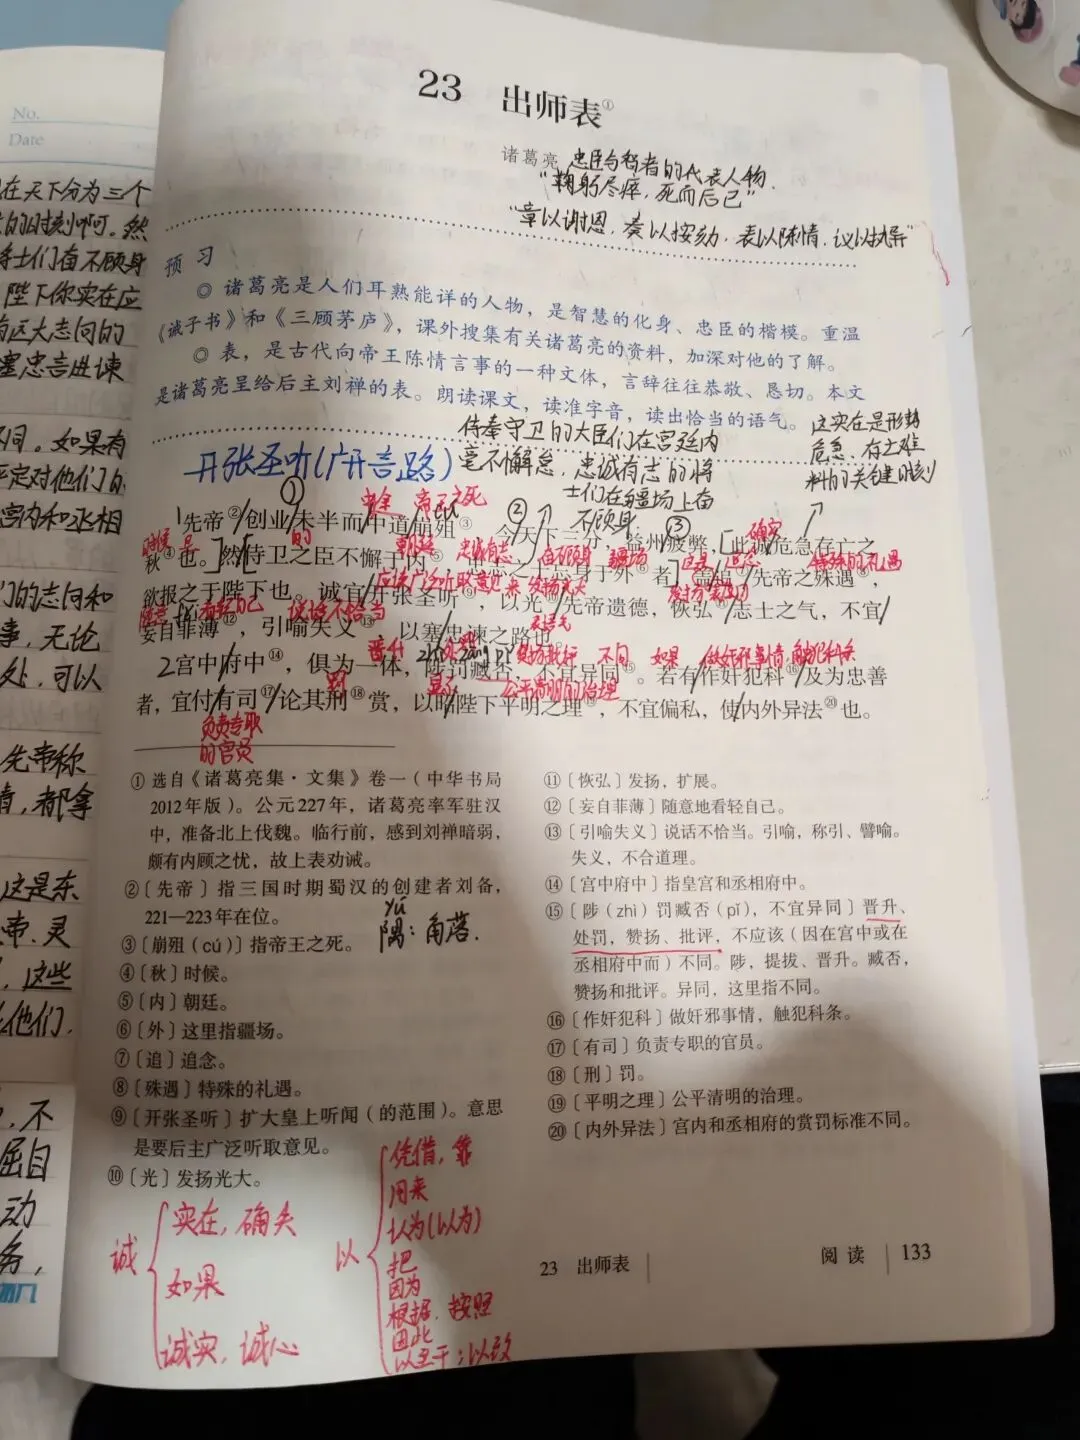 No.
Date
在天下分为三个
的时刻啊。然
将士们奋不顾身
陛下你实在应
大志向的
塞忠言进谏
不同。如果有
严定对他们的
宫内和丞相
们的志向和
事，无论
处，可以
先帝称
情，都拿
这是东
帝、灵
，这些
他们，
，不
屈自
动
务，
23 出师表①
诸葛亮 忠臣与智者的代表人物.
“鞠躬尽瘁，死而后已”
“章以谢恩，奏以按劾，表以陈情，议以执异”
预 习
◎ 诸葛亮是人们耳熟能详的人物，是智慧的化身、忠臣的楷模。重温
《诫子书》和《三顾茅庐》，课外搜集有关诸葛亮的资料，加深对他的了解。
◎ 表，是古代向帝王陈情言事的一种文体，言辞往往恭敬、恳切。本文
是诸葛亮呈给后主刘禅的表。朗读课文，读准字音，读出恰当的语气。
侍奉守卫的大臣们在宫廷内
毫不懈怠，忠诚有志的将
士们在疆场上奋
不顾身
这实在是形势
危急、存亡难
料的关键时刻
开张圣听(广开言路)
① ② ③
帝王之死 cú
1先帝②创业未半而中道崩殂③，今天下三分，益州疲弊，此诚危急存亡之
时候 是 的 朝廷 忠诚有志 奋不顾身 疆场 追念 特殊的礼遇
确实
秋④也。然侍卫之臣不懈于内⑤，忠志之士忘身于外⑥者，盖追⑦先帝之殊遇⑧，
应该广泛听取意见 发扬光大
欲报之于陛下也。诚宜开张圣听⑨，以光⑩先帝遗德，恢弘⑪志士之气，不宜
随意 看轻自己 说话不恰当
妄自菲薄⑫，引喻失义⑬，以塞忠谏之路也。
晋升 zhì 处罚 zāng pǐ 赞扬批评 不同 如果 做奸邪事情，触犯科条
2宫中府中⑭，俱为一体，陟罚臧否，不宜异同⑮。若有作奸犯科⑯及为忠善
罚 公平清明的治理
者，宜付有司⑰论其刑⑱赏，以昭陛下平明之理⑲，不宜偏私，使内外异法⑳也。
负责专职
的官员
① 选自《诸葛亮集·文集》卷一（中华书局
2012年版）。公元227年，诸葛亮率军驻汉
中，准备北上伐魏。临行前，感到刘禅暗弱，
颇有内顾之忧，故上表劝诫。
②〔先帝〕指三国时期蜀汉的创建者刘备，
221—223年在位。
yú
隅：角落.
③〔崩殂（cú）〕指帝王之死。
④〔秋〕时候。
⑤〔内〕朝廷。
⑥〔外〕这里指疆场。
⑦〔追〕追念。
⑧〔殊遇〕特殊的礼遇。
⑨〔开张圣听〕扩大皇上听闻（的范围）。意思
是要后主广泛听取意见。
⑩〔光〕发扬光大。
⑪〔恢弘〕发扬，扩展。
⑫〔妄自菲薄〕随意地看轻自己。
⑬〔引喻失义〕说话不恰当。引喻，称引、譬喻。
失义，不合道理。
⑭〔宫中府中〕指皇宫和丞相府中。
⑮〔陟（zhì）罚臧否（pǐ），不宜异同〕晋升、
处罚，赞扬、批评，不应该（因在宫中或在
丞相府中而）不同。陟，提拔、晋升。臧否，
赞扬和批评。异同，这里指不同。
⑯〔作奸犯科〕做奸邪事情，触犯科条。
⑰〔有司〕负责专职的官员。
⑱〔刑〕罚。
⑲〔平明之理〕公平清明的治理。
⑳〔内外异法〕宫内和丞相府的赏罚标准不同。
诚
实在，确实
如果
诚实，诚心
以
凭借，靠
用来
认为(以为)
把
因为
根据，按照
因此
以至于；以致
23 出师表
阅读 133